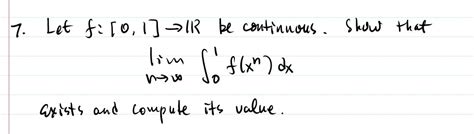 7. Let f: [0,1] → ℝ be continuous. Show that
lim n→∞ ∫₀¹ f(xⁿ) dx
exists and compute its value.